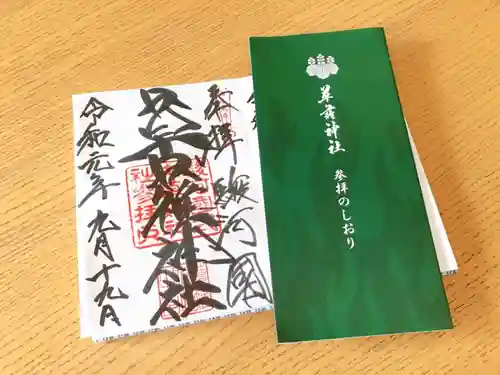 草薙神社
参拝のしおり
奉拝 駿河国
草薙神社
令和元年九月十九日